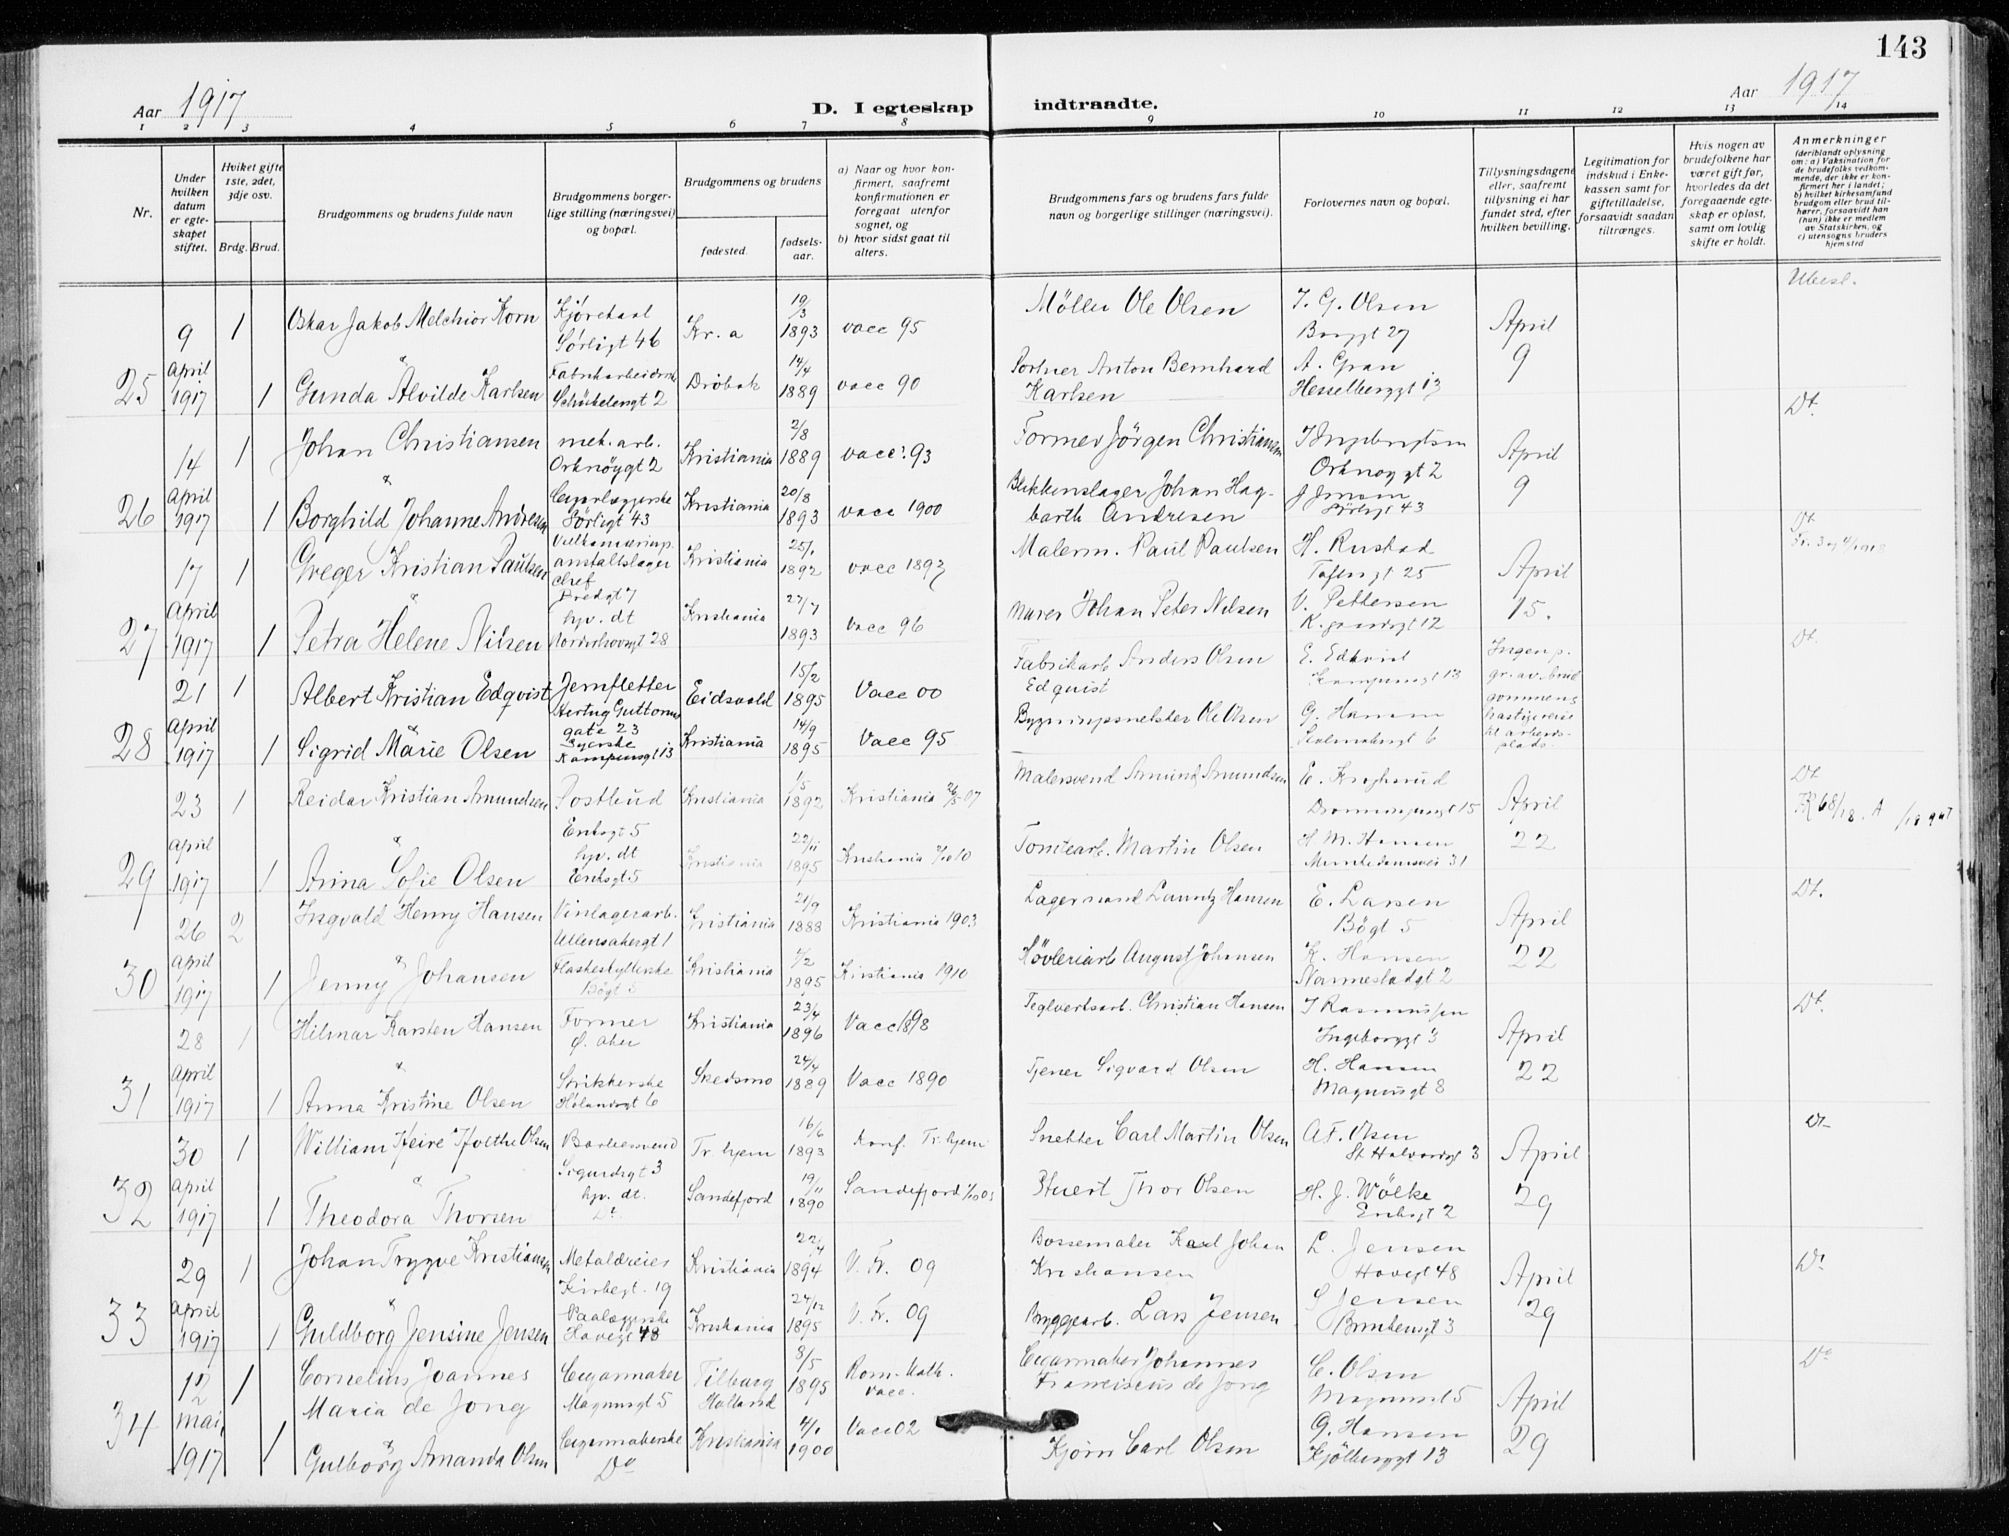 143
Aar 1917
D. I egteskap
indtraadte.
Aar 1917
1 2 3 4 5 6 7 8 9 10 11 12 13 14
Nr.
Under
hvilken
datum
er egte-
skapet
stiftet.
Hviket gifte
1ste, 2det,
3dje osv.
Brdg. Brud.
Brudgommens og brudens fulde navn
Brudgommens borger-
lige stilling (næringsvei)
og bopæl.
Brudgommens og brudens
fødested.
fødsels-
aar.
a) Naar og hvor kon-
firmert, saafremt
konfirmationen er
foregaat utenfor
sognet, og
b) hvor sidst gaat til
alters.
Brudgommens fars og brudens fars fulde
navn og borgerlige stillinger (næringsvei).
Forlovernes navn og bopæl.
Tillysningsdagene
eller, saafremt
tillysning ei har
fundet sted, efter
hvilken bevilling.
Legitimation for
indskud i Enke-
kassen samt for
giftetilladelse,
forsaavidt saadan
tiltrænges.
Hvis nogen av
brudefolkene har
været gift før,
hvorledes da det
foregaaende egte-
skap er opløst,
samt om lovlig
skifte er holdt.
Anmerkninger
(deriblandt oplysning
om: a) Vaksination for
de brudefolks vedkom-
mende, der ikke er kon-
firmert her i landet;
b) hvilket kirkesamfund
brudgom eller brud til-
hører, forsaavidt han
(hun) ikke er medlem
av Statskirken, og
c) utensogns bruders
hjemsted
25
9 April 1917
1 Oskar Jakob Melchior Korn
Sørligt 46
Kr. a 19/3 1893 vacc 95
Møller Ole Olsen
J. G. Olsen
Borggt 27
April 9
Ubesl.
1 Gunda Alvilde Karlsen
Schübelersgt 2
Drøbak 14/4 1889 vacc 90
Anton Bernhard
Karlsen
A. Gran
Hesselberggt 13
26
14 April 1917
1 Johan Christiansen
mek. arb.
Orknøygt 2
Kristiania 2/8 1889 vacc. 93
Former Jörgen Christiansen
Orknøygt 2
April 9
Dt.
1 Borghild Johanne Andresen
Sørligt 43
Kristiania 20/8 1893 vacc 1900
Blikkenslager Johan Hag-
barth Andresen
Sörligt 43
27
17 April 1917
1 Greger Kristian Paulsen
anstaltslager
chef
Bredgt 7
Kristiania 25/1 1892
Malerm. Paul Paulsen
H. Rustad
Toftesgt 25
April 15.
Dt.
1 Petra Helene Nilsen
hjv. dt
Norderhovsgt 28
Kristiania 27/7 1893 Vacc 96
Murer Johan Peter Nilsen
V. Pettersen
28
21 April 1917
1 Albert Kristian Edqvist
Jernfletter
Hertug Guttorms
gate 23
Eidsvold 15/2 1895 Vacc 00
Fabrikarb Anders Olsen
Edquist
E. Edkvist
Kampensgt 13
Ingen p.
gr. av. brud
gommens
hastige reise
til arbeids-
plads.
Dt.
1 Sigrid Marie Olsen
Syerske
Kampensgt 13
Kristiania 14/9 1895 Vacc 95
Bygningssnekker Ole Olsen
G. Hansen
29
23 April 1917
1 Reidar Kristian Amundsen
Postbud
Enkegt 5
Kristiania 1/5 1892 Kristiania 26/5 07
Malersvend Amund Amundsen
E. Kroghsrud
Drammensgt 15
April 22
Dt
1 Anna Sofie Olsen
hjv. dt
Enkegt 5
Kristiania 22/11 1895 Kristiania
Tomtearb. Martin Olsen
H. M. Hansen
Munkedamsvei 31
30
26 April 1917
2 Ingvald Henry Hansen
Vinlagerarb.
Ullensakergt 1
Kristiania 21/9 1888 Kristiania 1903
Lagermand Lauritz Hansen
E. Larsen
Bøgt 5
April 22
Dt.
1 Jenny Johansen
Flaskeskyllerske
Bøgt 5
Kristiania 1895 Kristiania 1910
Høvleriarb August Johansen
K. Hansen
Nannestadgt 2
31
28 April 1917
1 Hilmar Karsten Hansen
Former
Ø. Aker
Kristiania 23/4 1896 Vacc 1898
Teglverksarb. Christian Hansen
J Rasmussen
Ingeborggt 3
April 22
Dt.
1 Anna Kristine Olsen
Strikkerske
Hølandsgt 6
Skedsmo 24/4 1889 Vacc 1890
Tjener Sigvard Olsen
H. Hansen
Magnusgt 8
32
30 April 1917
1 William Olsen
Barbersvend
Sigurdsgt 3
Tr. hjem 16/6 1893 Konf. Tr. hjem
Snekker Carl Martin Olsen
A. F. Olsen
St Halvardsgt 3
April 29
Dt
1 Theodora Thorsen
hjv. dt.
Dt
Sandefjord 19/11 1890 Sandefjord
Stuert Thor Olsen
H. J. Wölke
Enkegt 2
33
29 April 1917
1 Johan Trygve Kristiansen
Metaldreier
Kirkegt. 19
Kristiania 22/4 1894 V. Fr. 09
Bøssemaker Karl Johan
Kristiansen
L. Jensen
Hovegt 48
April 29
Dt
1 Guldborg Jensine Jensen
Paalæggerske
Hovegt 48
Kristiania 24/12 1895 V. Fr. 09
Byggearb. Lars Jensen
S Jensen
34
12 mai 1917
1 Cornelius Joannes
Maria de Jong
Cigarmaker
Magnusgt 5
Tilburg
Holland
8/5 1895
Rom. kath.
vacc.
Cigarmaker Johannes
Franciscus de Jong
C. Olsen
Magnusgt 5
April 29
Do
1 Gulborg Amanda Olsen
Cigarmakerske
Do
Kristiania 4/1 1900 Vacc 02
Kjørn Carl Olsen
G. Hansen
Kjölberggt 13